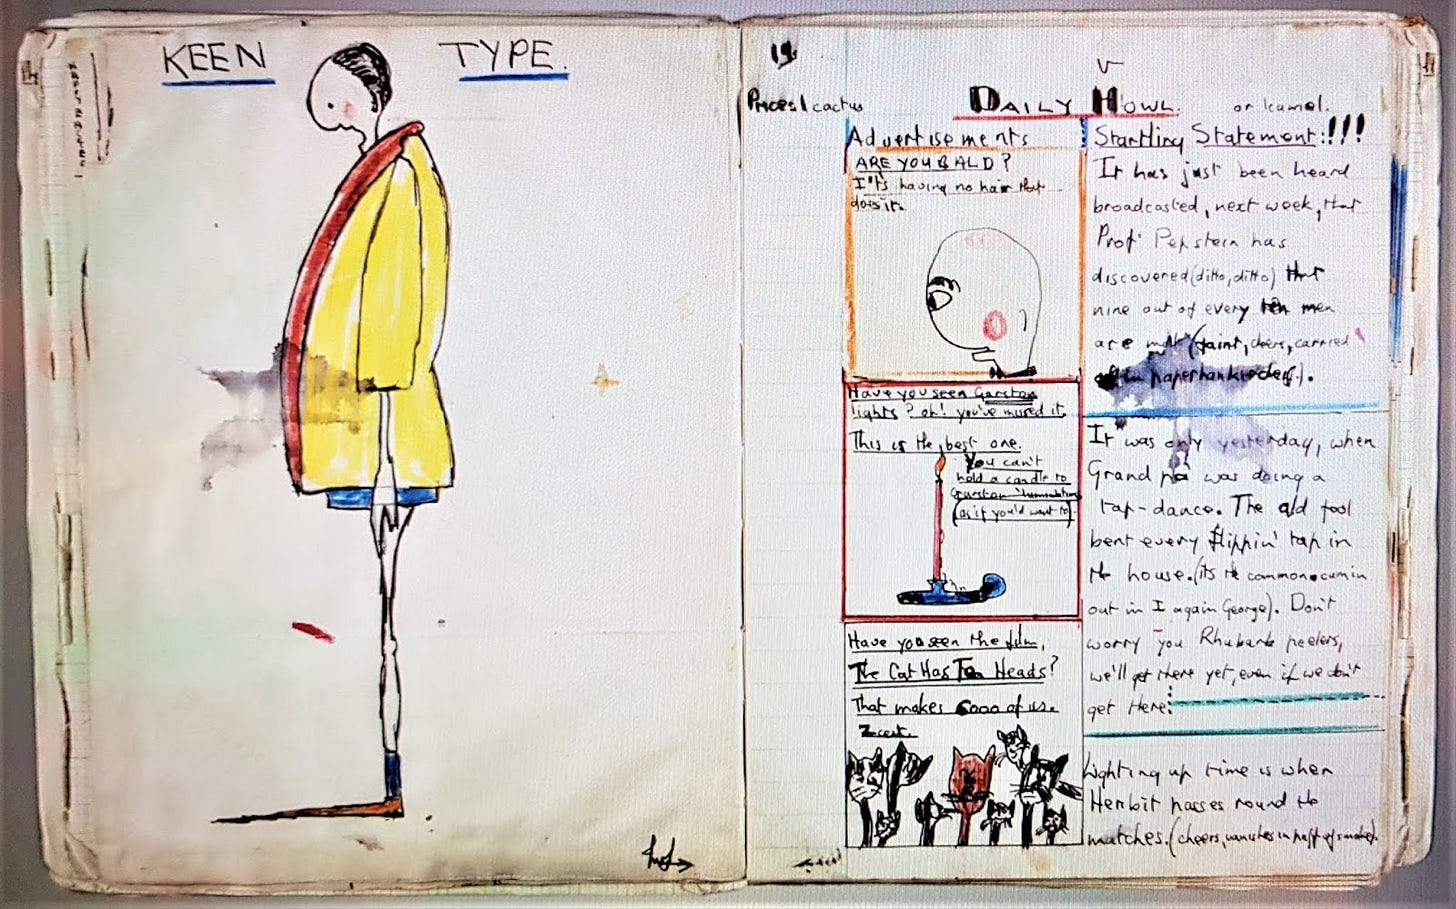 KEEN TYPE.
19
Prices 1 cactus
DAILY HOWL.
or kamel.
Advertisements
ARE YOU BALD?
It's having no hair that
does it.
Have you seen Garston
lights? oh! you've missed it.
This is the best one.
You can't
hold a candle to
Garston
(as if you'd want to).
Have you seen the film,
The Cat Has Ten Heads?
That makes 6000 of us.
Z cert.
Startling Statement:!!!
It has just been heard
broadcasted, next week, that
Prof Pepstein has
discovered (ditto, ditto) that
nine out of every ten men
are (faint, cheers, carried
paperhankercheif.).
It was only yesterday, when
Grand pa was doing a
tap-dance. The old fool
bent every flippin' tap in
the house. (its the common cumin
out in I again George). Don't
worry you Rhubarb peelers,
we'll get there yet, even if we don't
get Here:
Lighting up time is when
Henbit passes round the
matches. (cheers, vanishes in puff of smoke).